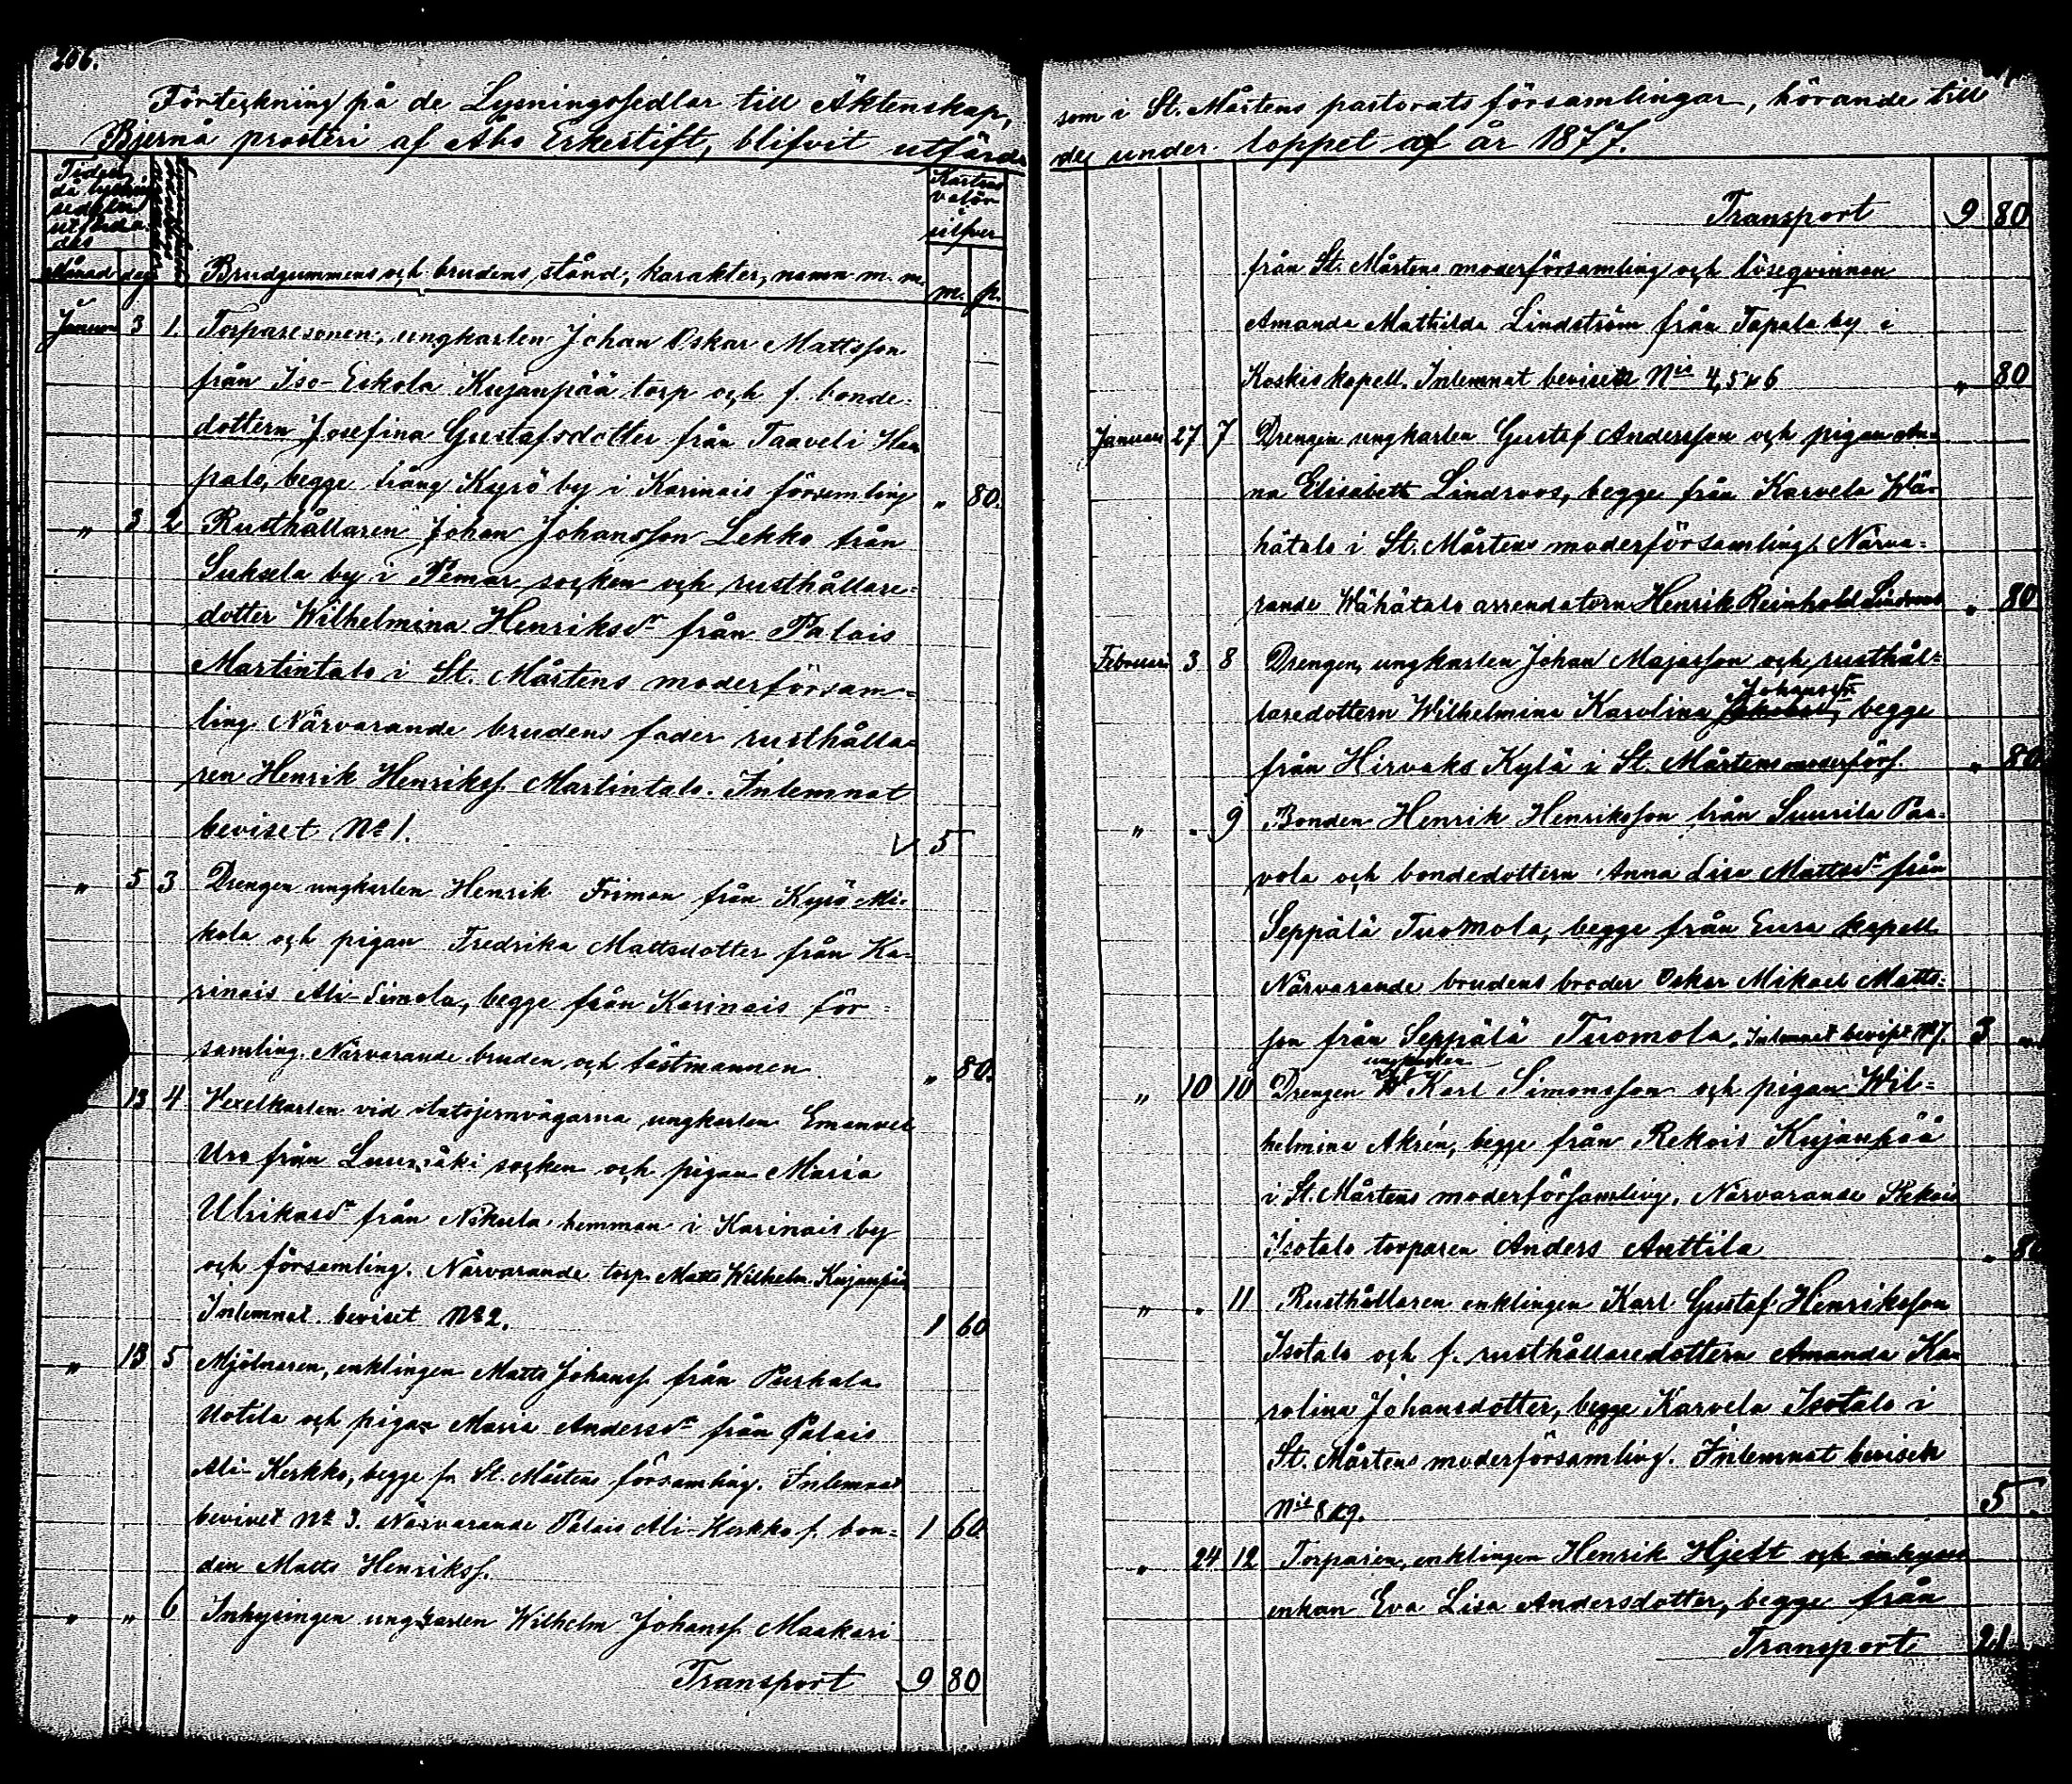 206.
Förteckning på de Lysningssedlar till Äktenskap,
Bjernå prosteri af Åbo Erkestift, blifvit utfärda
Tiden
då lysnings
sedeln
utfärda-
des
Kartans
valör
silfver
Månad dag Brudgummens och brudens stånd, karakter, namn m. m. m. p.
Januari 3 1. Torparesonen, ungkarlen Johan Oskar Mattsson
från Iso-Eskola Kujanpää torp och f. bonde-
dottern Josefina Gustafsdotter från Taaveli Haa
palo, begge från Kyrö by i Karinais församling " 80.
" 3 2 Rusthållaren Johan Johansson Lekko från
Suksela by i Pemar socken och rusthållare-
dotter Wilhelmina Henriksdr från Palais
Martintalo i St. Mårtens moderförsam-
ling Närvarande brudens fader rusthålla-
ren Henrik Henrikss. Martintalo. Inlemnat
beviset No 1. 5
" 5 3 Drengen ungkarlen Henrik Friman från Kyrö Mi-
kola och pigan Fredrika Mattsdotter från Ka-
rinais Ali-Simola, begge från Karinais för-
samling. Närvarande bruden och fästmannen " 80.
13 4 Vexelkarlen vid statsjernvägarna ungkarlen Emanuel
Uro från Luumäki socken och pigan Maria
Ulrikasdr från hemman i Karinais by
och församling. Närvarande torp. Matts Wilhelm Kujanpää
Inlemnat beviset No 2. 1 60
" 13 5 Mjölnaren, enklingen Matts Johanss. från Purhala
Uotila och pigan Maria Andersdr från Palais
Ali-Kerkko, begge fr. St. Mårtens församling. Inlemnat
beviset No 3. Närvarande Palais Ali-Kerkko f. bon- 1 60
den Matts Henrikss.
" " 6 Inhysingen ungkarlen Wilhelm Johanss. Maakari
Transport 9 80
som i St. Mårtens pastorats församlingar, hörande till
de under loppet af år 1877.
Transport 9 80
från St. Mårtens moderförsamling och lösqvinnan
Amanda Mathilda Lindström från Tapala by i
Koskis kapell. Inlemnat bevisen Nis 4, 5 o 6 " 80
Januari 27 7 Drengen ungkarlen Gustaf Andersson och pigan An-
na Elisabett Lindroos, begge från Karvela Wä-
hätalo i St. Mårtens moderförsamling. Närva-
rande Wähätalo arrendatorn Henrik Reinhold Lindroos " 80
Februari 3 8 Drengen, ungkarlen Johan Majasson och rusthål-
Johansdr
laredottern Wilhelmina Karolina begge
från Hirvaks Kylä i St. Mårtens moderförs. " 80
" " 9 Bonden Henrik Henriksson från Suurila Paa-
vola och bondedottern Anna Lisa Mattsdr från
Seppälä Tuomola, begge från Eura kapell
Närvarande brudens broder Oskar Mikael Matts-
son från Seppälä Tuomola. Inlemnat beviset No 7. 3
ungkarlen
" 10 10 Drengen Karl Simonsson och pigan Wil-
helmina Akrén, begge från Rekois Kujanpää
i St. Mårtens moderförsamling. Närvarande Rekois
Isotalo torparen Anders Anttila " 80
" " 11 Rusthållaren enklingen Karl Gustaf Henriksson
Isotalo och f. rusthållaredottern Amanda Ka
rolina Johansdotter, begge Karvela Isotalo i
St. Mårtens moderförsamling. Inlemnat bevisen
Nis 8 o 9. 5
" 24 12 Torparen, enklingen Henrik Hjelt och inhyses
enkan Eva Lisa Andersdotter, begge från
Transport 21